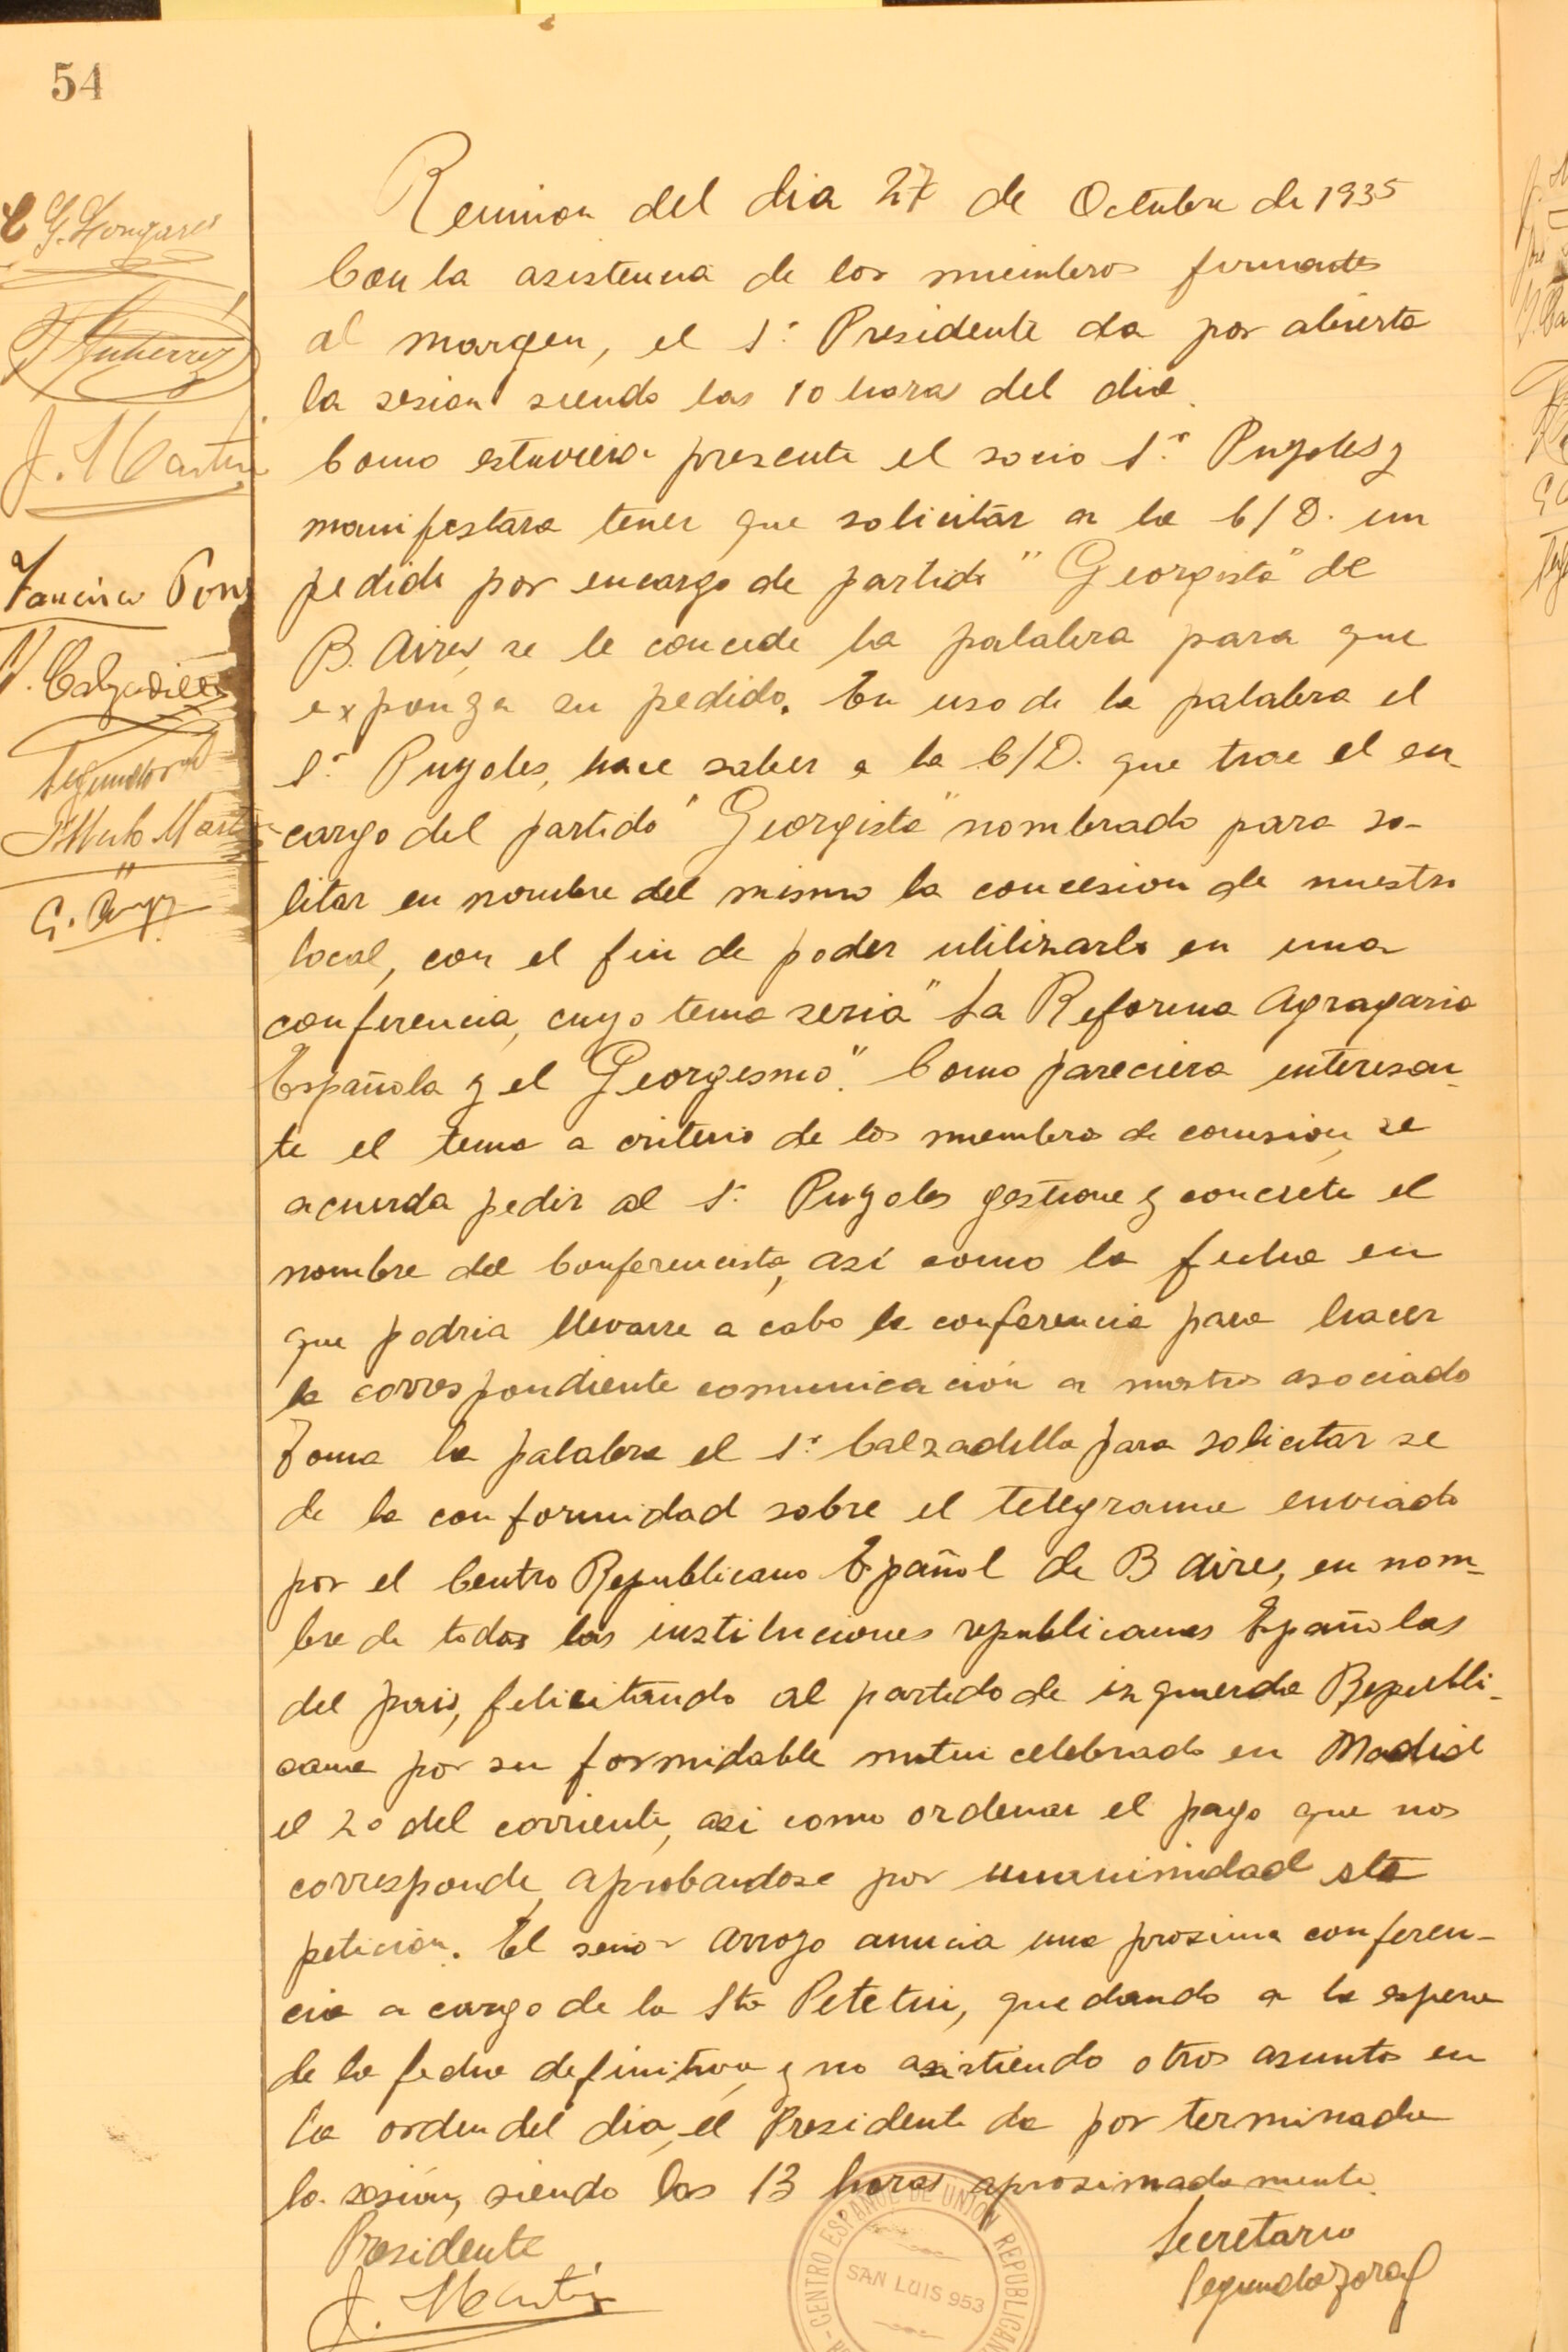 54
G. Hongares
Gutierrez
J. Martin
Francisco Pons
V. Calzadilla
Segundo
Martin
Reunion del dia 27 de Octubre de 1935
Con la asistencia de los miembros firmantes
al margen, el Sr. Presidente da por abierta
la sesion siendo las 10 horas del dia.
Como estuviera presente el socio Sr. Pugoles y
manifestara tener que solicitar a la C/D. un
pedido por encargo de partido "Georgista" de
B. Aires, se le concede la palabra para que
exponga su pedido. En uso de la palabra el
Sr. Pugoles, hace saber a la C/D. que trae el en-
cargo del partido "Georgista" nombrado para so-
litar en nombre del mismo la concesion de nuestro
local, con el fin de poder utilizarlo en una
conferencia, cuyo tema seria "La Reforma Agragaria
Española y el Georgesmo". Como pareciera interesan-
te el tema a criterio de los miembros de comision, se
acuerda pedir al Sr. Pugoles gestione y concrete el
nombre del Conferencista, así como la fecha en
que podria llevarse a cabo la conferencia para hacer
la correspondiente comunicación a nuestros asociado
Toma la palabra el Sr. Calzadilla para solicitar se
de la conformidad sobre el telegrama enviado
por el Centro Republicano Español de B Aires, en nom-
bre de todas las instituciones republicanas Españolas
del pais, felicitando al partido de izquierda Republi-
cana por su formidable mitin celebrado en Madid
el 20 del corriente, asi como ordenar el pago que nos
corresponde, aprobandose por unanimidad sta
peticion. El senor Arroyo anucia una prosima conferen-
cia a cargo de la Sta Petetini, quedando a la espera
de la fecha definitiva, y no asistiendo otros asuntos en
la orden del dia, el Presidente da por terminada
la sesión, siendo las 13 horas aprosimadamente.
Presidente
Secretario
J. Martin
Segundo Zoraf
CENTRO ESPAÑOL DE UNION REPUBLICANA
SAN LUIS 953